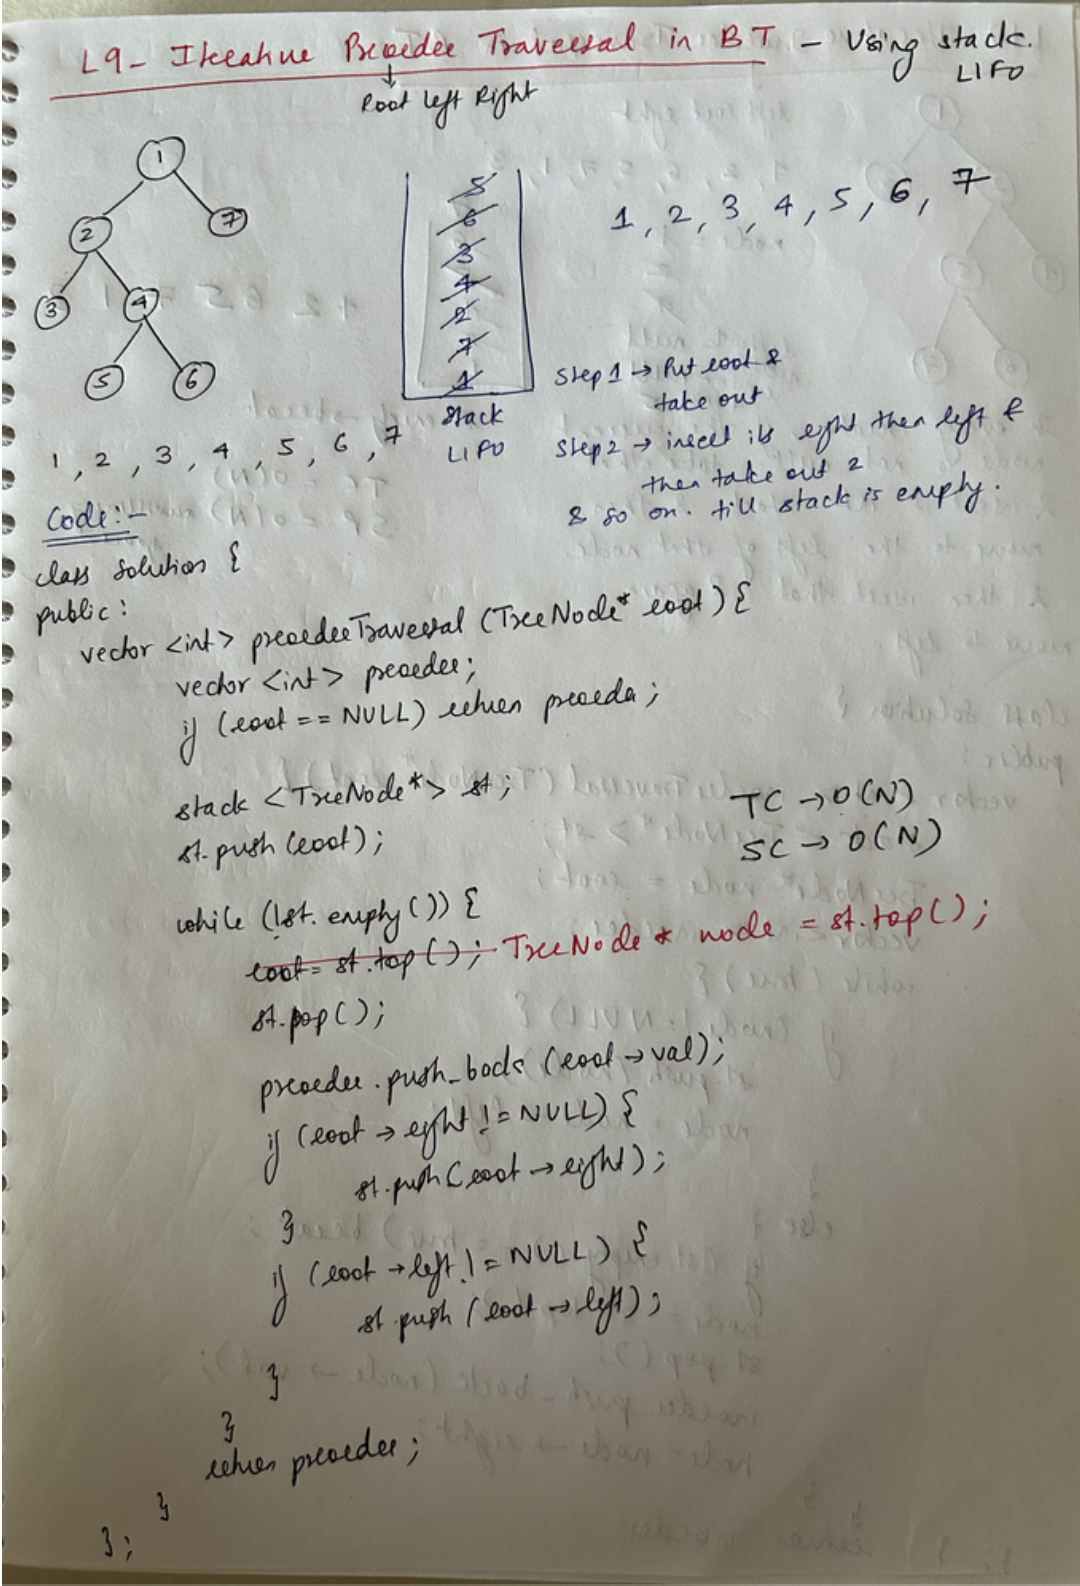 L9- Iterative Preorder Traversal in BT - Using stack.
LIFO
↓
Root left Right
1
2
7
3
4
5
6
5
6
3
4
2
7
1
Stack
LIFO
1, 2, 3, 4, 5, 6, 7
Step 1 → Put root &
take out
Step 2 → insert its right then left &
then take out 2
& so on. till stack is empty.
1, 2, 3, 4, 5, 6, 7
Code:-
class Solution {
public:
vector <int> preorderTraversal (TreeNode* root) {
vector <int> preorder;
if (root == NULL) return preorder;
stack <TreeNode*> st;
st.push(root);
TC → O(N)
SC → O(N)
while (!st.empty()) {
root = st.top(); TreeNode* node = st.top();
st.pop();
preorder.push_back (root → val);
if (root → right != NULL) {
st.push(root → right);
}
if (root → left != NULL) {
st.push (root → left);
}
}
return preorder;
}
};